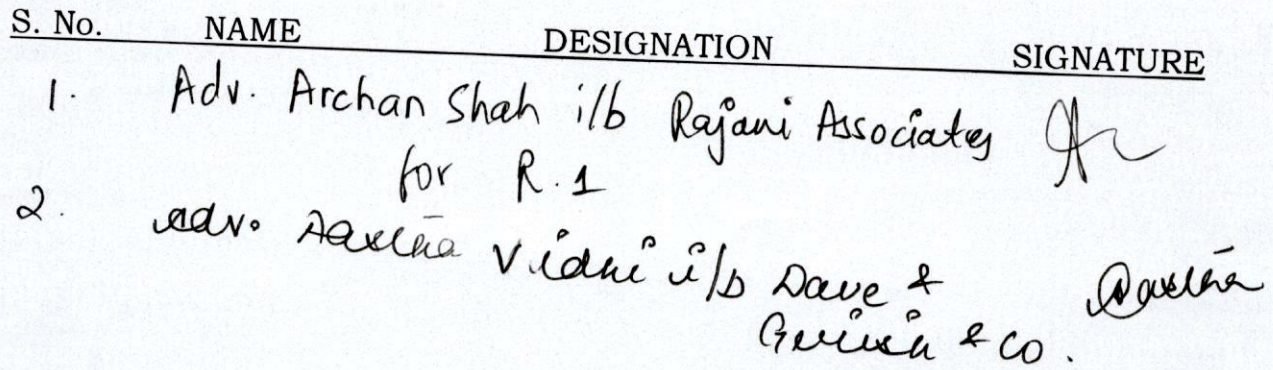 S. No. NAME DESIGNATION SIGNATURE
1. Adv. Archan Shah i/b Rajani Associates
for R.1
2. Adv. Aastha Vidhi i/b Dave &
Girish & Co. Aastha